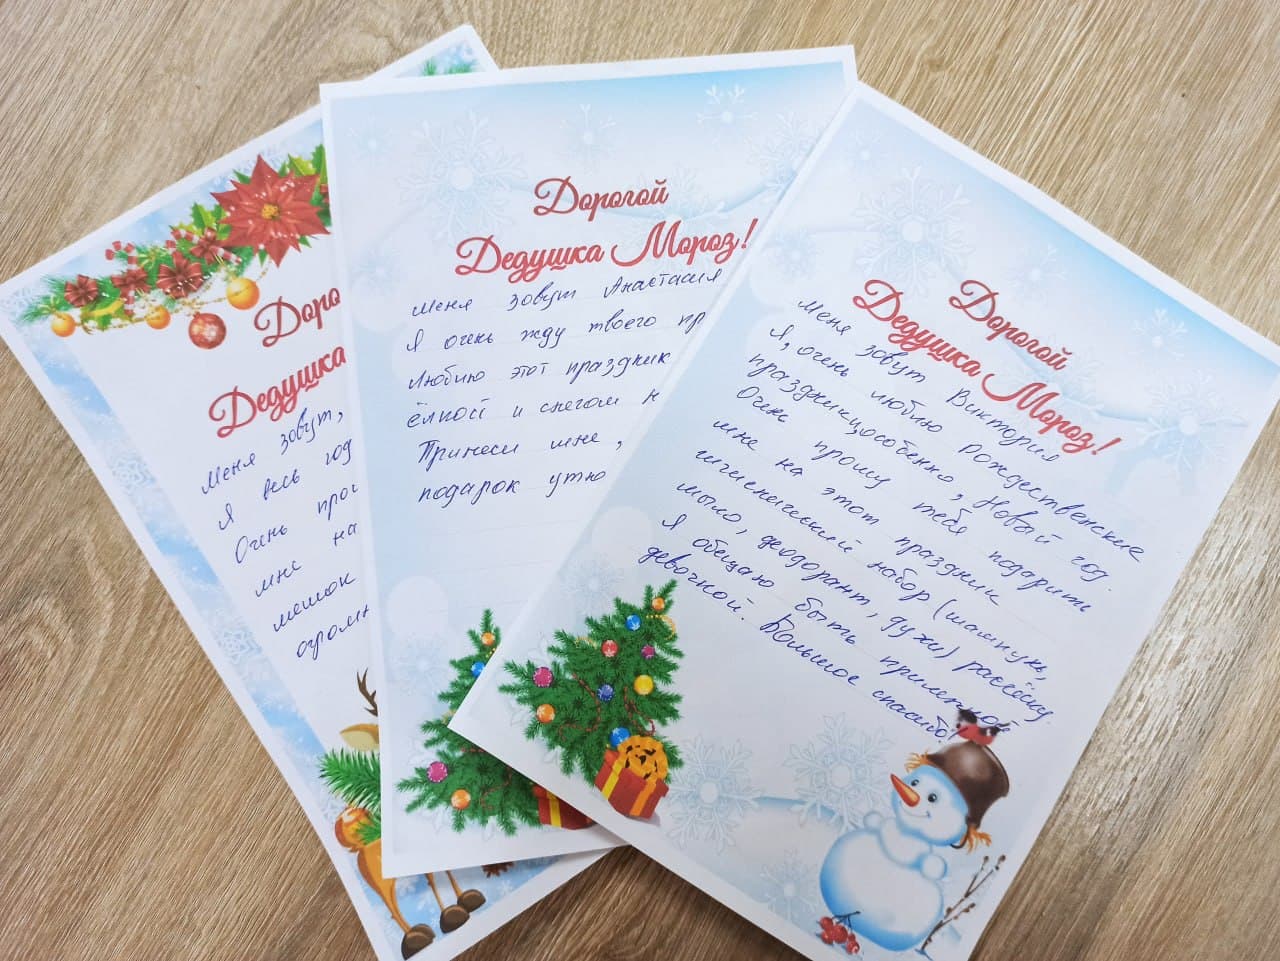 Доро
Дедушка
Меня зовут,
Я весь год
Очень прос
мне на
мешок
огромн
Дорогой
Дедушка Мороз!
Меня зовут Анастасия
Я очень жду твоего пр
Люблю этот праздник
ёлкой и снегом н
Принеси мне,
подарок утю
Дорогой
Дедушка Мороз!
Меня зовут Виктория
Я, очень люблю Рождественские
праздники, особенно, Новый год
Очень прошу тебя подарить
мне на этот праздник
гигиенический набор (шампунь,
мыло, дезодорант, духи) расчёску.
Я обещаю быть прилежной
девочкой. Большое спасибо!